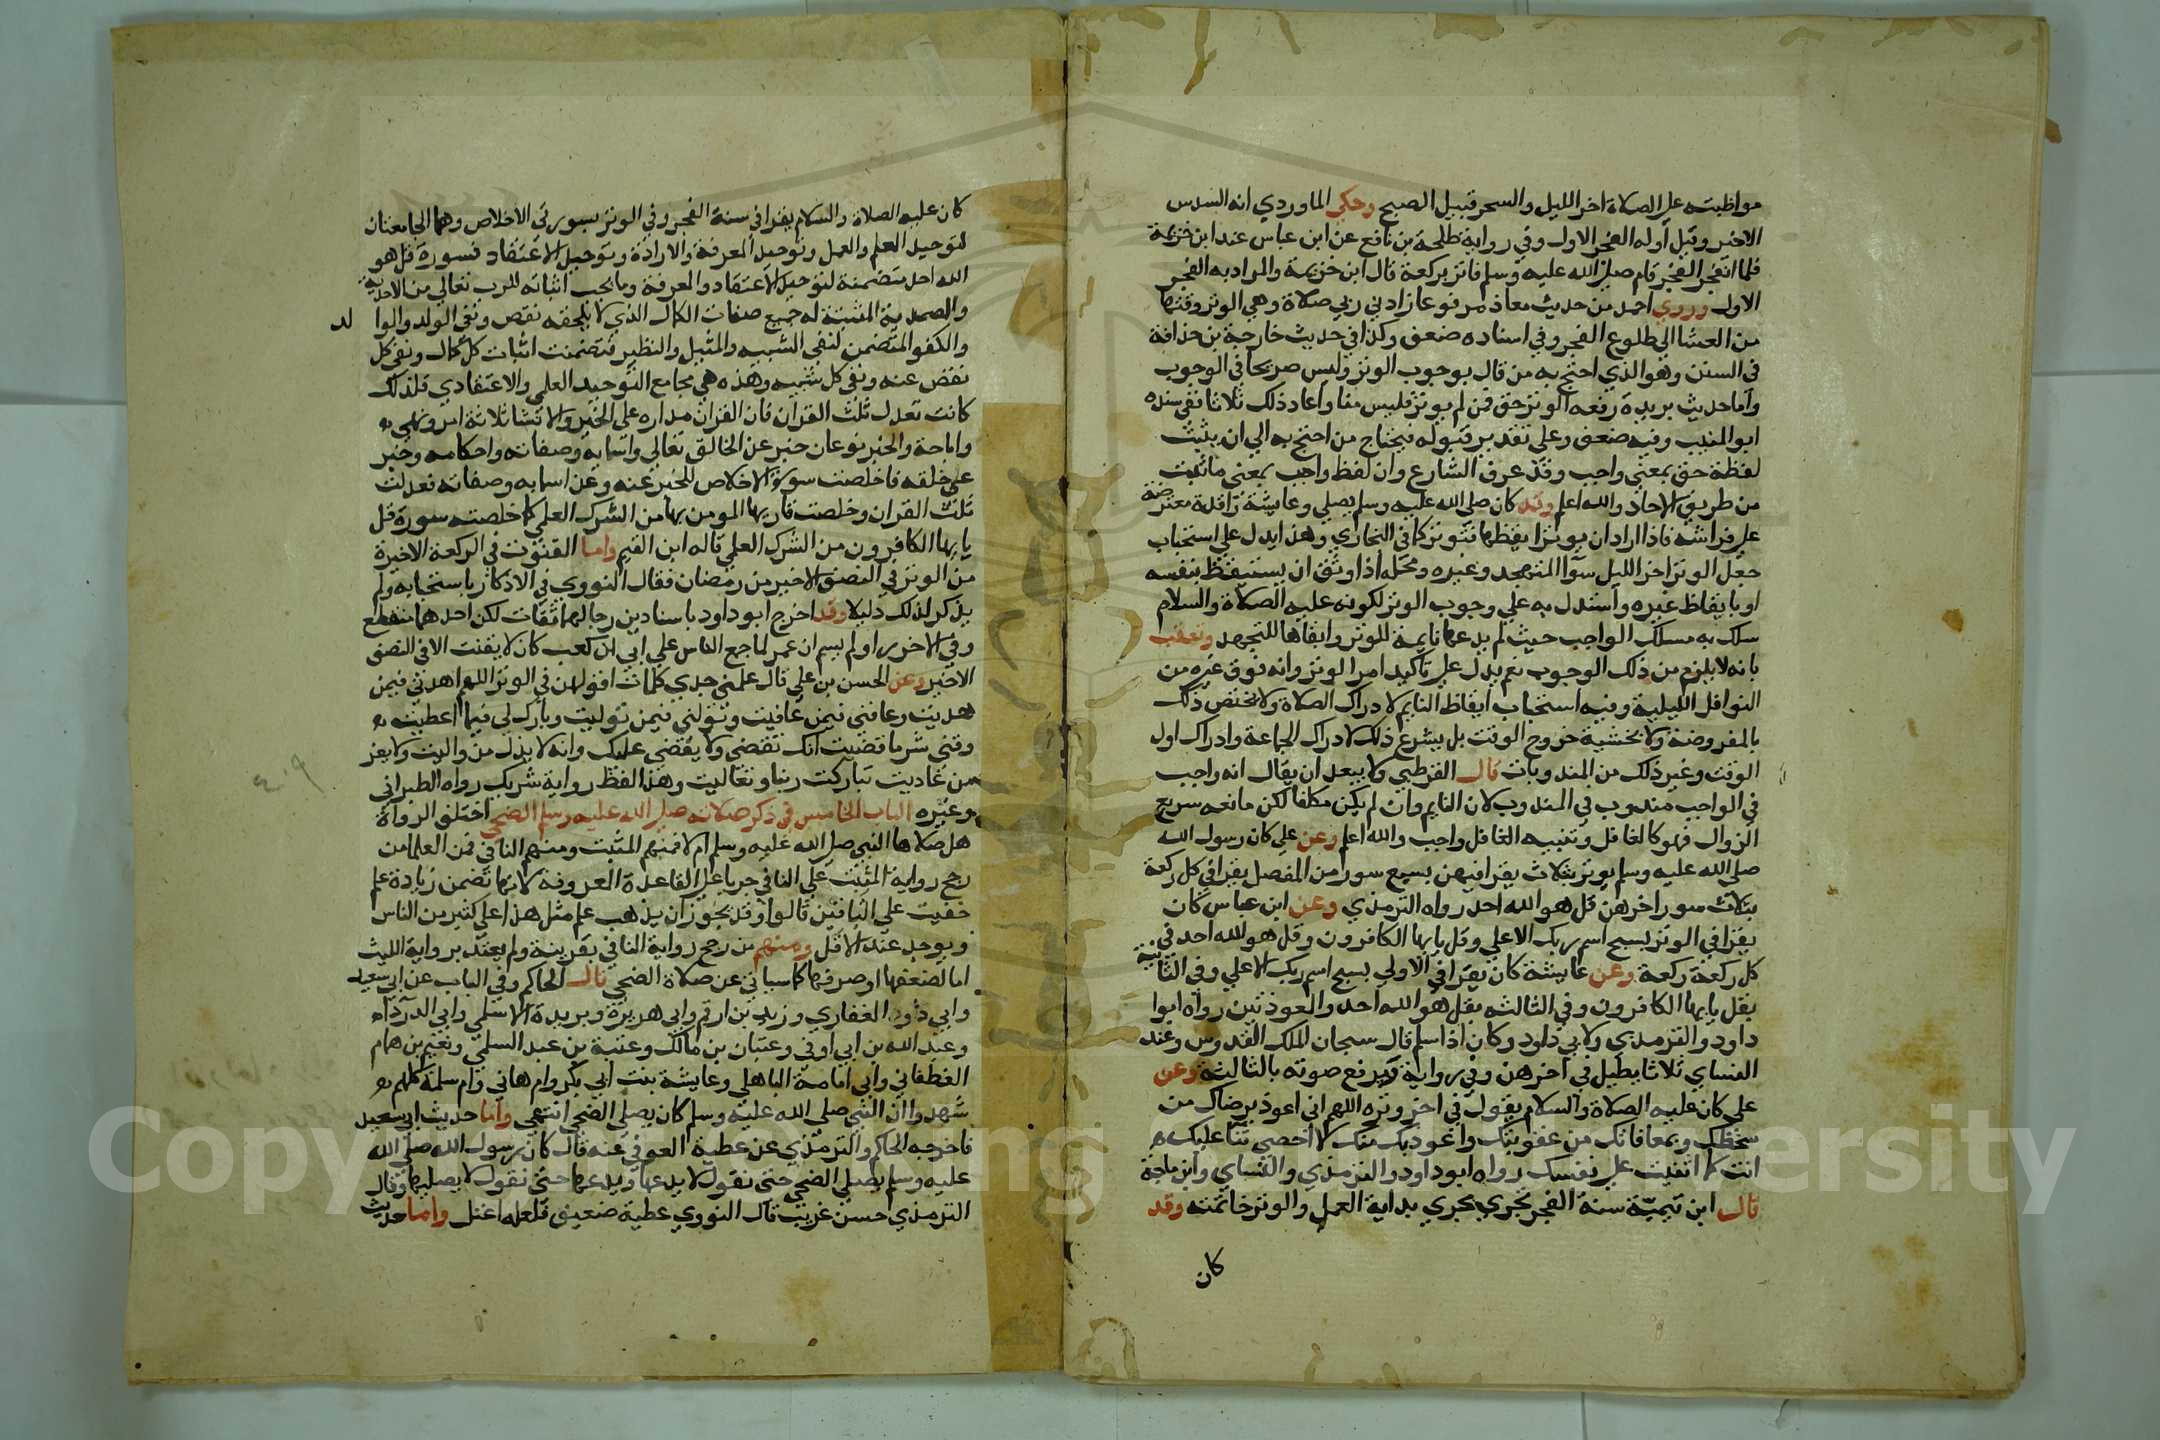 مواظبته على الصلاة اخر الليل والسحر قبيل الصبح وحكى الماوردي انه السدس
الاخير وقيل أوله الفجر الاول وفي رواية طلحة بن نافع عن ابن عباس عند ابن خزيمة
فلما انفجر الفجر قام صلى الله عليه وسلم فاوتر بركعة قال ابن خزيمة والمراد به الفجر
الاول وروي احمد من حديث معاذ مرفوعا زادني ربي صلاة وهي الوتر وقتها
من العشا الي طلوع الفجر وفي اسناده ضعف وكذا في حديث خارجة بن حذافة
في السنن وهو الذي احتج به من قال بوجوب الوتر وليس صريحا في الوجوب
واما حديث بريدة رفعه الوتر حق فمن لم يوتر فليس منا واعاد ذلك ثلاثا ففي سنده
ابو المنيب وفيه ضعف وعلي تقدير قبوله فيحتاج من احتج به الي ان يثبت
لفظة حق بمعني واجب وفي عرف الشارع وان لفظ واجب بمعني ما ثبت
من طريق الاحاد والله اعلم وقد كان صلى الله عليه وسلم يصلي وعايشة راقدة معترضة
علي فراشه فاذا اراد ان يوتر ايقظها فتوتر كما في البخاري وهذا يدل علي استحباب
جعل الوتر اخر الليل سوآ المتهجد وغيره ومحله اذا وثق ان يستيقظ بنفسه
او بايقاظ غيره وآستدل به علي وجوب الوتر لكونه عليه الصلاة والسلام
سلك به مسلك الواجب حيث لم يدعها نايمة للوتر وابقاها للتهجد وتعقب
بانه لا يلزم من ذلك الوجوب نعم يدل على تاكيد امر الوتر وانه فوق غيره من
النوافل الليلية وفيه استحباب ايقاظ النايم لادراك الصلاة ولا يختص ذلك
بالمفروضة ولا بخشية خروج الوقت بل يشرع ذلك لادراك الجماعة وادراك اول
الوقت وغير ذلك من المندوبات قال القرطبي ولا يبعد ان يقال انه واجب
في الواجب مندوب في المندوب لان النايم وان لم يكن مكلفا لكن مانعه سريع
الزوال فهو كالغافل وتنبيه الغافل واجب والله اعلم وعن علي كان رسول الله
صلى الله عليه وسلم يوتر بثلاث يقرا فيهن بسبع سور من المفصل يقرا في كل ركعة
بثلاث سور اخرهن قل هو الله احد رواه الترمذي وعن ابن عباس كان
يقرا في الوتر بسبح اسم ربك الاعلي وقل يا يها الكافرون وقل هو الله احد في
كل ركعة ركعة وعن عايشة كان يقرا في الاولي بسبح اسم ربك الاعلي وفي الثانية
بقل يا يها الكافرون وفي الثالثه بقل هو الله احد والمعوذتين رواه ابوا
داود والترمذي ولابي داود وكان اذا سلم قال سبحان الملك القدوس وعند
النساي ثلاثا يطيل في اخرهن وفي رواية ويرفع صوته بالثالثة وعن
علي كان عليه الصلاة والسلام يقول في اخر وتره اللهم اني اعوذ برضاك من
سخطك وبمعافاتك من عقوبتك واعوذ بك منك لا احصي ثنآ عليك
انت كما اثنيت على نفسك رواه ابو داود والترمذي والنساي وابن ماجة
قال ابن تيمية سنة الفجر تجري مجري بداية العمل والوتر خاتمته وقد
كان
كان عليه الصلاة والسلام يقرا في سنة الفجر وفي الوتر بسورتي الاخلاص وهما الجامعتان
لتوحيد العلم والعمل وتوحيد المعرفة والارادة وتوحيد الاعتقاد فسورة قل هو
الله احد متضمنة لتوحيد الاعتقاد والمعرفة وما يجب اثباته للرب تعالي من الاحدية
والصمدية المثبتة له جميع صفات الكمال الذي لا يلحقه نقص ونفي الولد والوا لد
والكفو المتضمن لنفي الشبيه والمثيل والنظير فتضمنت اثبات كل كمال ونفي كل
نقص عنه ونفي كل شبيه وهذه هي مجامع التوحيد العلمي والاعتقادي فلذلك
كانت تعدل ثلث القرآن فان القران مداره علي الخبر والانشا ثلاثة امر ونهي
واباحة والخبر نوعان خبر عن الخالق تعالي واسمايه وصفاته واحكامه وخبر
علي خلقه فاخلصت سورة الاخلاص للخبر عنه وعن اسمايه وصفاته فعدلت
ثلث القران وخلصت قاريها المومن بها من الشرك العلمي كما خلصته سورة قل
يا يها الكافرون من الشرك العملي قاله ابن القيم واما القنوت في الركعة الاخيرة
من الوتر في النصف الاخير من رمضان فقال النووي في الاذكار باستحبابه ولم
يذكر لذلك دليلا وقد اخرج ابو داود باسنادين رجالهما ثقات لكن احدهما منقطع
وفي الاخر راو لم يسم ان عمر لما جمع الناس علي ابي ابن كعب كان لا يقنت الا في النصف
الاخير وعن الحسن بن علي قال علمني جدي كلمات اقولهن في الوتر اللهم اهدني فيمن
هديت وعافني فيمن عافيت وتولني فيمن توليت وبارك لي فيما اعطيت
وقني شر ما قضيت انك تقضي ولا يقضي عليك وانه لا يذل من واليت ولا يعز
من عاديت تباركت ربنا وتعاليت وهذا لفظ رواية شريك رواه الطبراني
وغيره الباب الخامس في ذكر صلاته صلى الله عليه وسلم الضحي اختلف الرواة
هل صلاها النبي صلى الله عليه وسلم ام لا فمنهم المثبت ومنهم النافي فمن العلما من
رجح رواية المثبت علي النافي جريا على القاعدة المعروفة لانها تضمن زيادة علم
خفيت علي النافين قالوا وقد يجوز ان يذهب علم مثل هذا علي كثير من الناس
ويوجد عند الاقل ومنهم من رجح رواية النافي بقرينة ولم يعتد برواية المثبت
اما لضعفها او صرفها كما سياتي عن صلاة الضحي قال الحاكم وفي الباب عن ابي سعيد
وابي ذر الغفاري وزيد بن ارقم وابي هريرة وبريدة الاسلمي وابي الدرداء
وعبد الله بن ابي اوفي وعتبان بن مالك وعتبة بن عبد السلمي ونعيم بن همام
الغطفاني وابي امامة الباهلي وعايشة بنت ابي بكر وام هاني وام سلمة كلهم
شهدوا ان النبي صلى الله عليه وسلم كان يصلي الضحي انتهي واما حديث ابي سعيد
فاخرجه الحاكم والترمذي عن عطية العوفي عنه قال كان رسول الله صلى الله
عليه وسلم يصلي الضحي حتى نقول لا يدعها ويدعها حتى نقول لا يصليها وقال
الترمذي حسن غريب قال النووي عطية ضعيف فلعله اعتل واما حديث